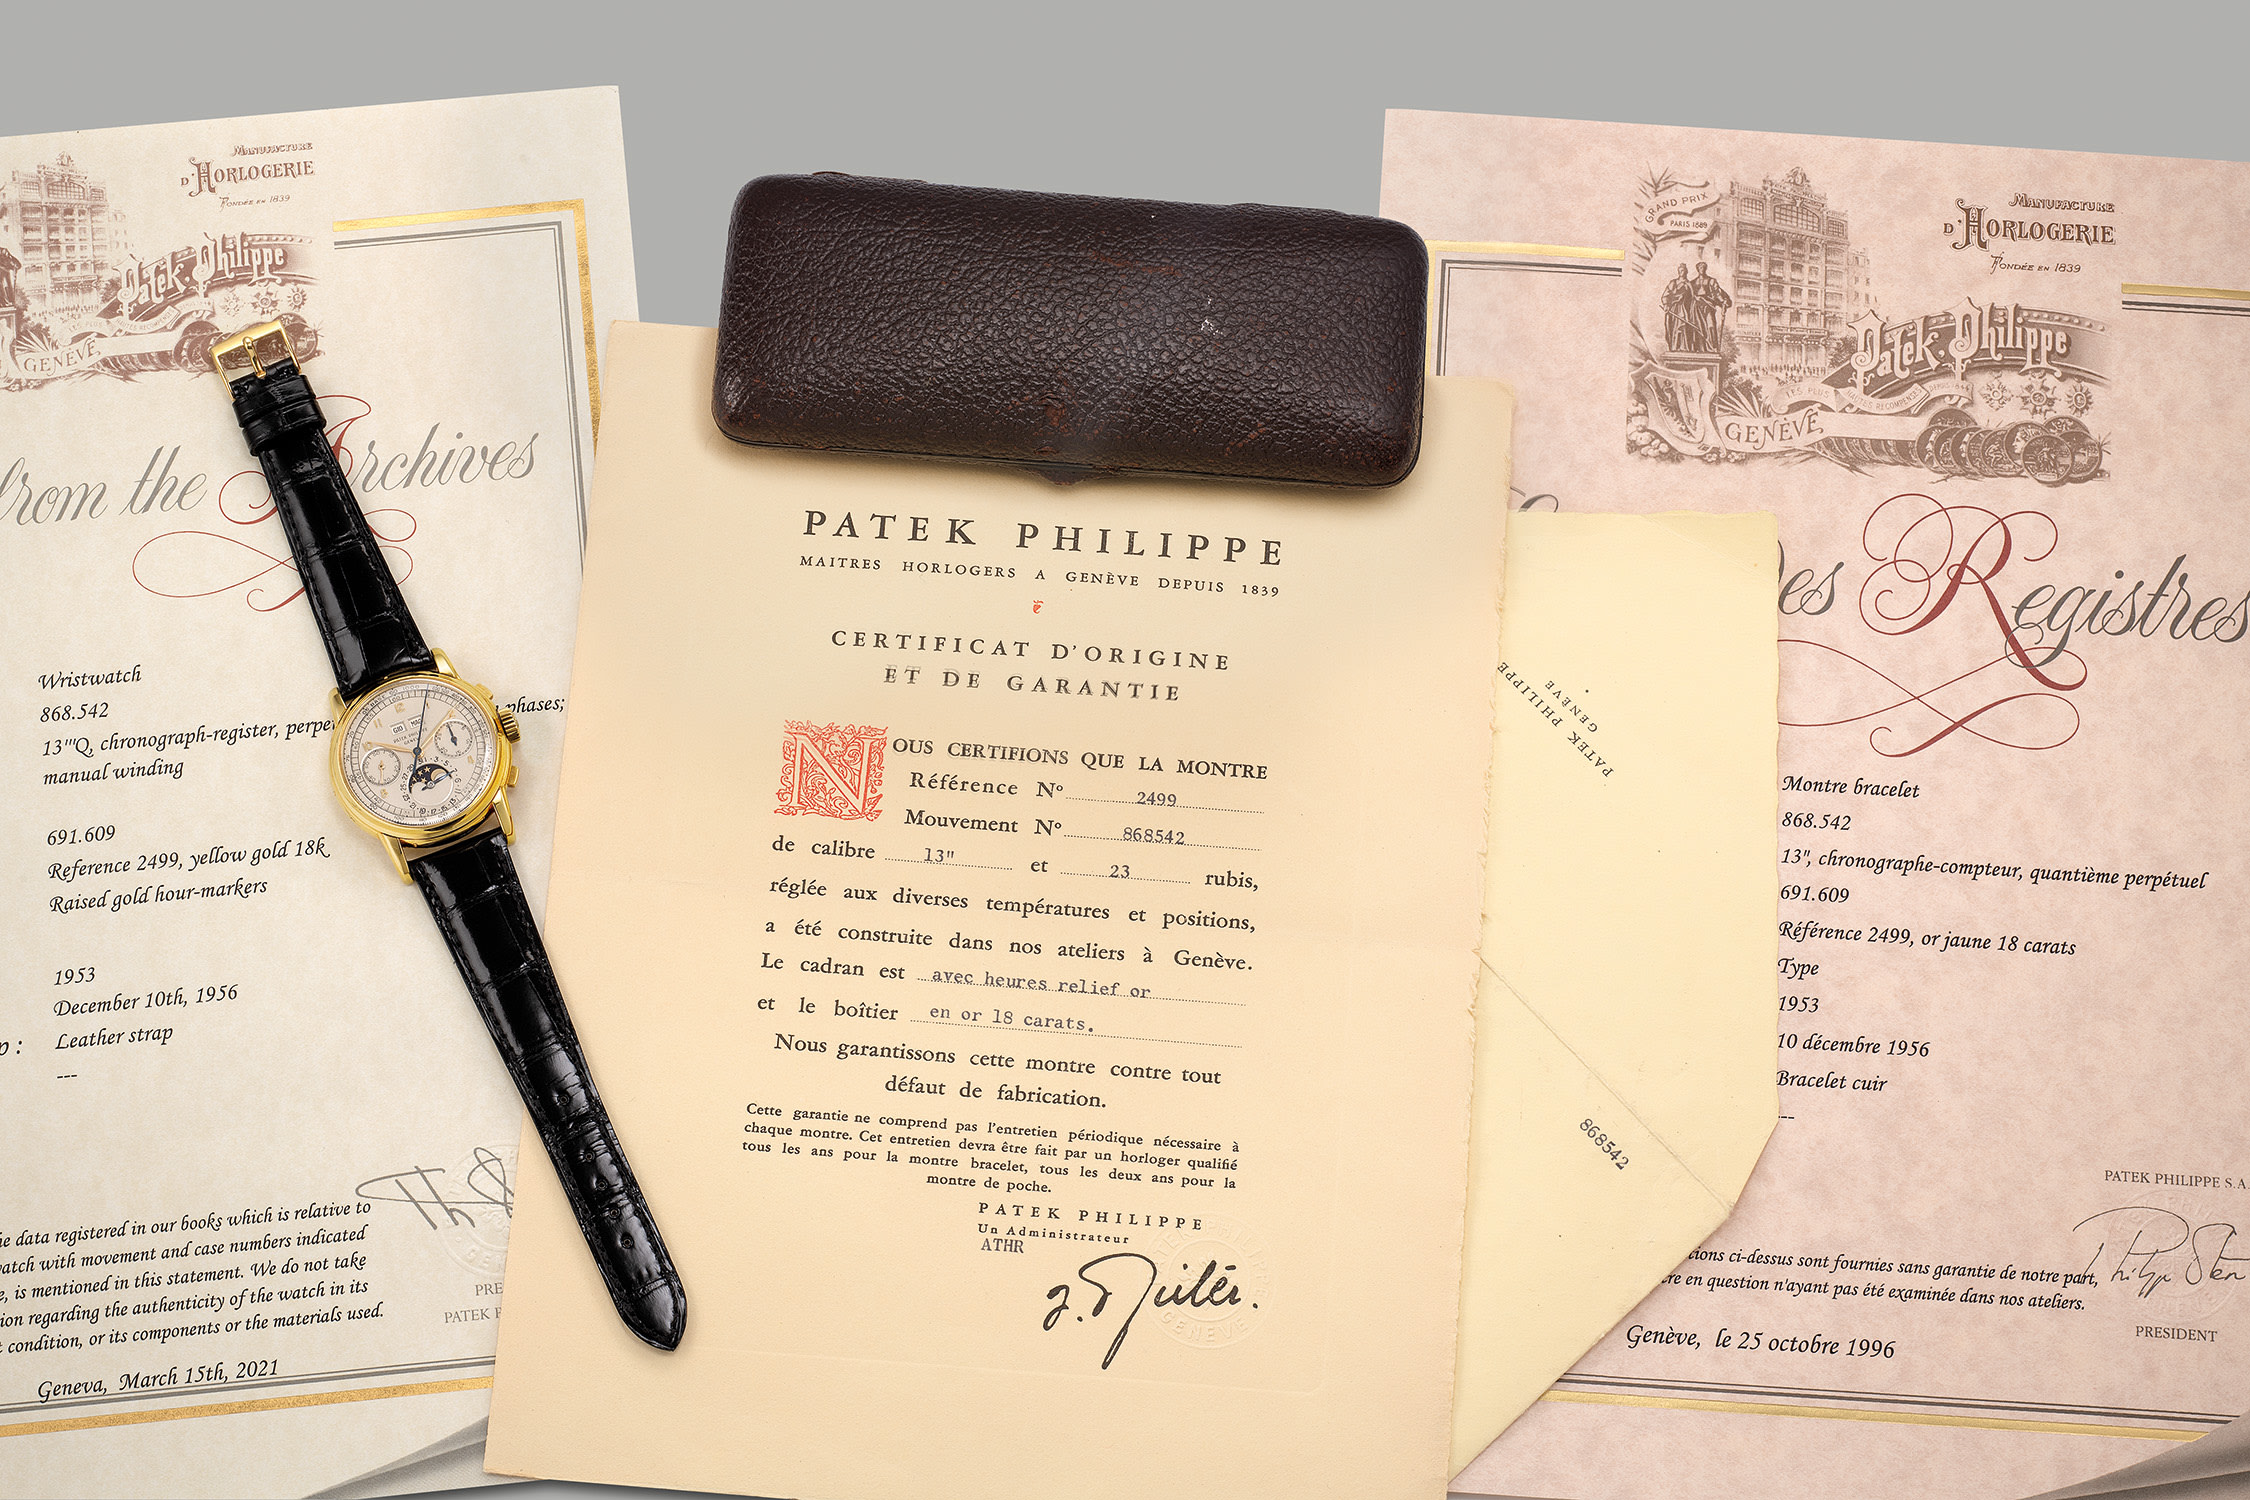 MANUFACTURE
D'HORLOGERIE
FONDÉE EN 1839
Patek. Philippe
LES PLUS HAUTES RECOMPENSES
GENÈVE
from the Archives
Wristwatch
868.542
13'''Q, chronograph-register, phases;
manual winding
691.609
Reference 2499, yellow gold 18k
Raised gold hour-markers
1953
December 10th, 1956
Leather strap
---
data registered in our books which is relative to
with movement and case numbers indicated
is mentioned in this statement. We do not take
regarding the authenticity of the watch in its
condition, or its components or the materials used.
PATEK
Geneva, March 15th, 2021
PATEK PHILIPPE
MAITRES HORLOGERS A GENÈVE DEPUIS 1839
CERTIFICAT D'ORIGINE
ET DE GARANTIE
NOUS CERTIFIONS QUE LA MONTRE
Référence Nº 2499
Mouvement Nº 868542
de calibre 13" et 23 rubis,
réglée aux diverses températures et positions,
a été construite dans nos ateliers à Genève.
Le cadran est avec heures relief or
et le boîtier en or 18 carats.
Nous garantissons cette montre contre tout
défaut de fabrication.
Cette garantie ne comprend pas l'entretien périodique nécessaire à
chaque montre. Cet entretien devra être fait par un horloger qualifié
tous les ans pour la montre bracelet, tous les deux ans pour la
montre de poche.
PATEK PHILIPPE
Un Administrateur
ATHR
PATEK PHILIPPE
GENÈVE
868542
GRAND PRIX
PARIS 1889
MANUFACTURE
D'HORLOGERIE
FONDÉE EN 1839
Patek. Philippe
LES PLUS HAUTES RECOMPENSES
GENÈVE
des Registres
Montre bracelet
868.542
13", chronographe-compteur, quantième perpétuel
691.609
Référence 2499, or jaune 18 carats
Type
1953
10 décembre 1956
Bracelet cuir
---
PATEK PHILIPPE S.A.
ci-dessus sont fournies sans garantie de notre part,
en question n'ayant pas été examinée dans nos ateliers.
PRESIDENT
Genève, le 25 octobre 1996